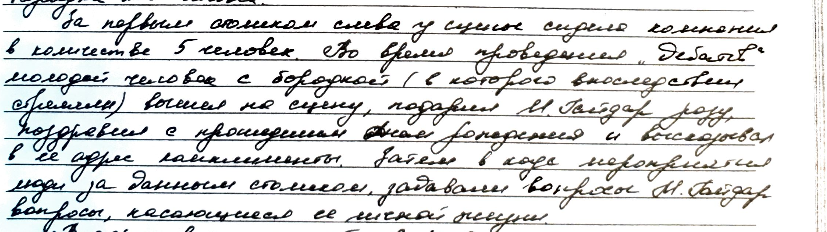 За первым столиком слева у сцены сидела компания
в количестве 5 человек. Во время проведения "Дебатов"
молодой человек с бородкой (в которого впоследствии
стреляли) вышел на сцену, подарил М. Гайдар розу,
поздравил с прошедшим днем рождения и высказывал
в ее адрес комплименты. Затем в ходе мероприятия
люди за данным столиком, задавали вопросы М. Гайдар
вопросы, касающиеся ее личной жизни.